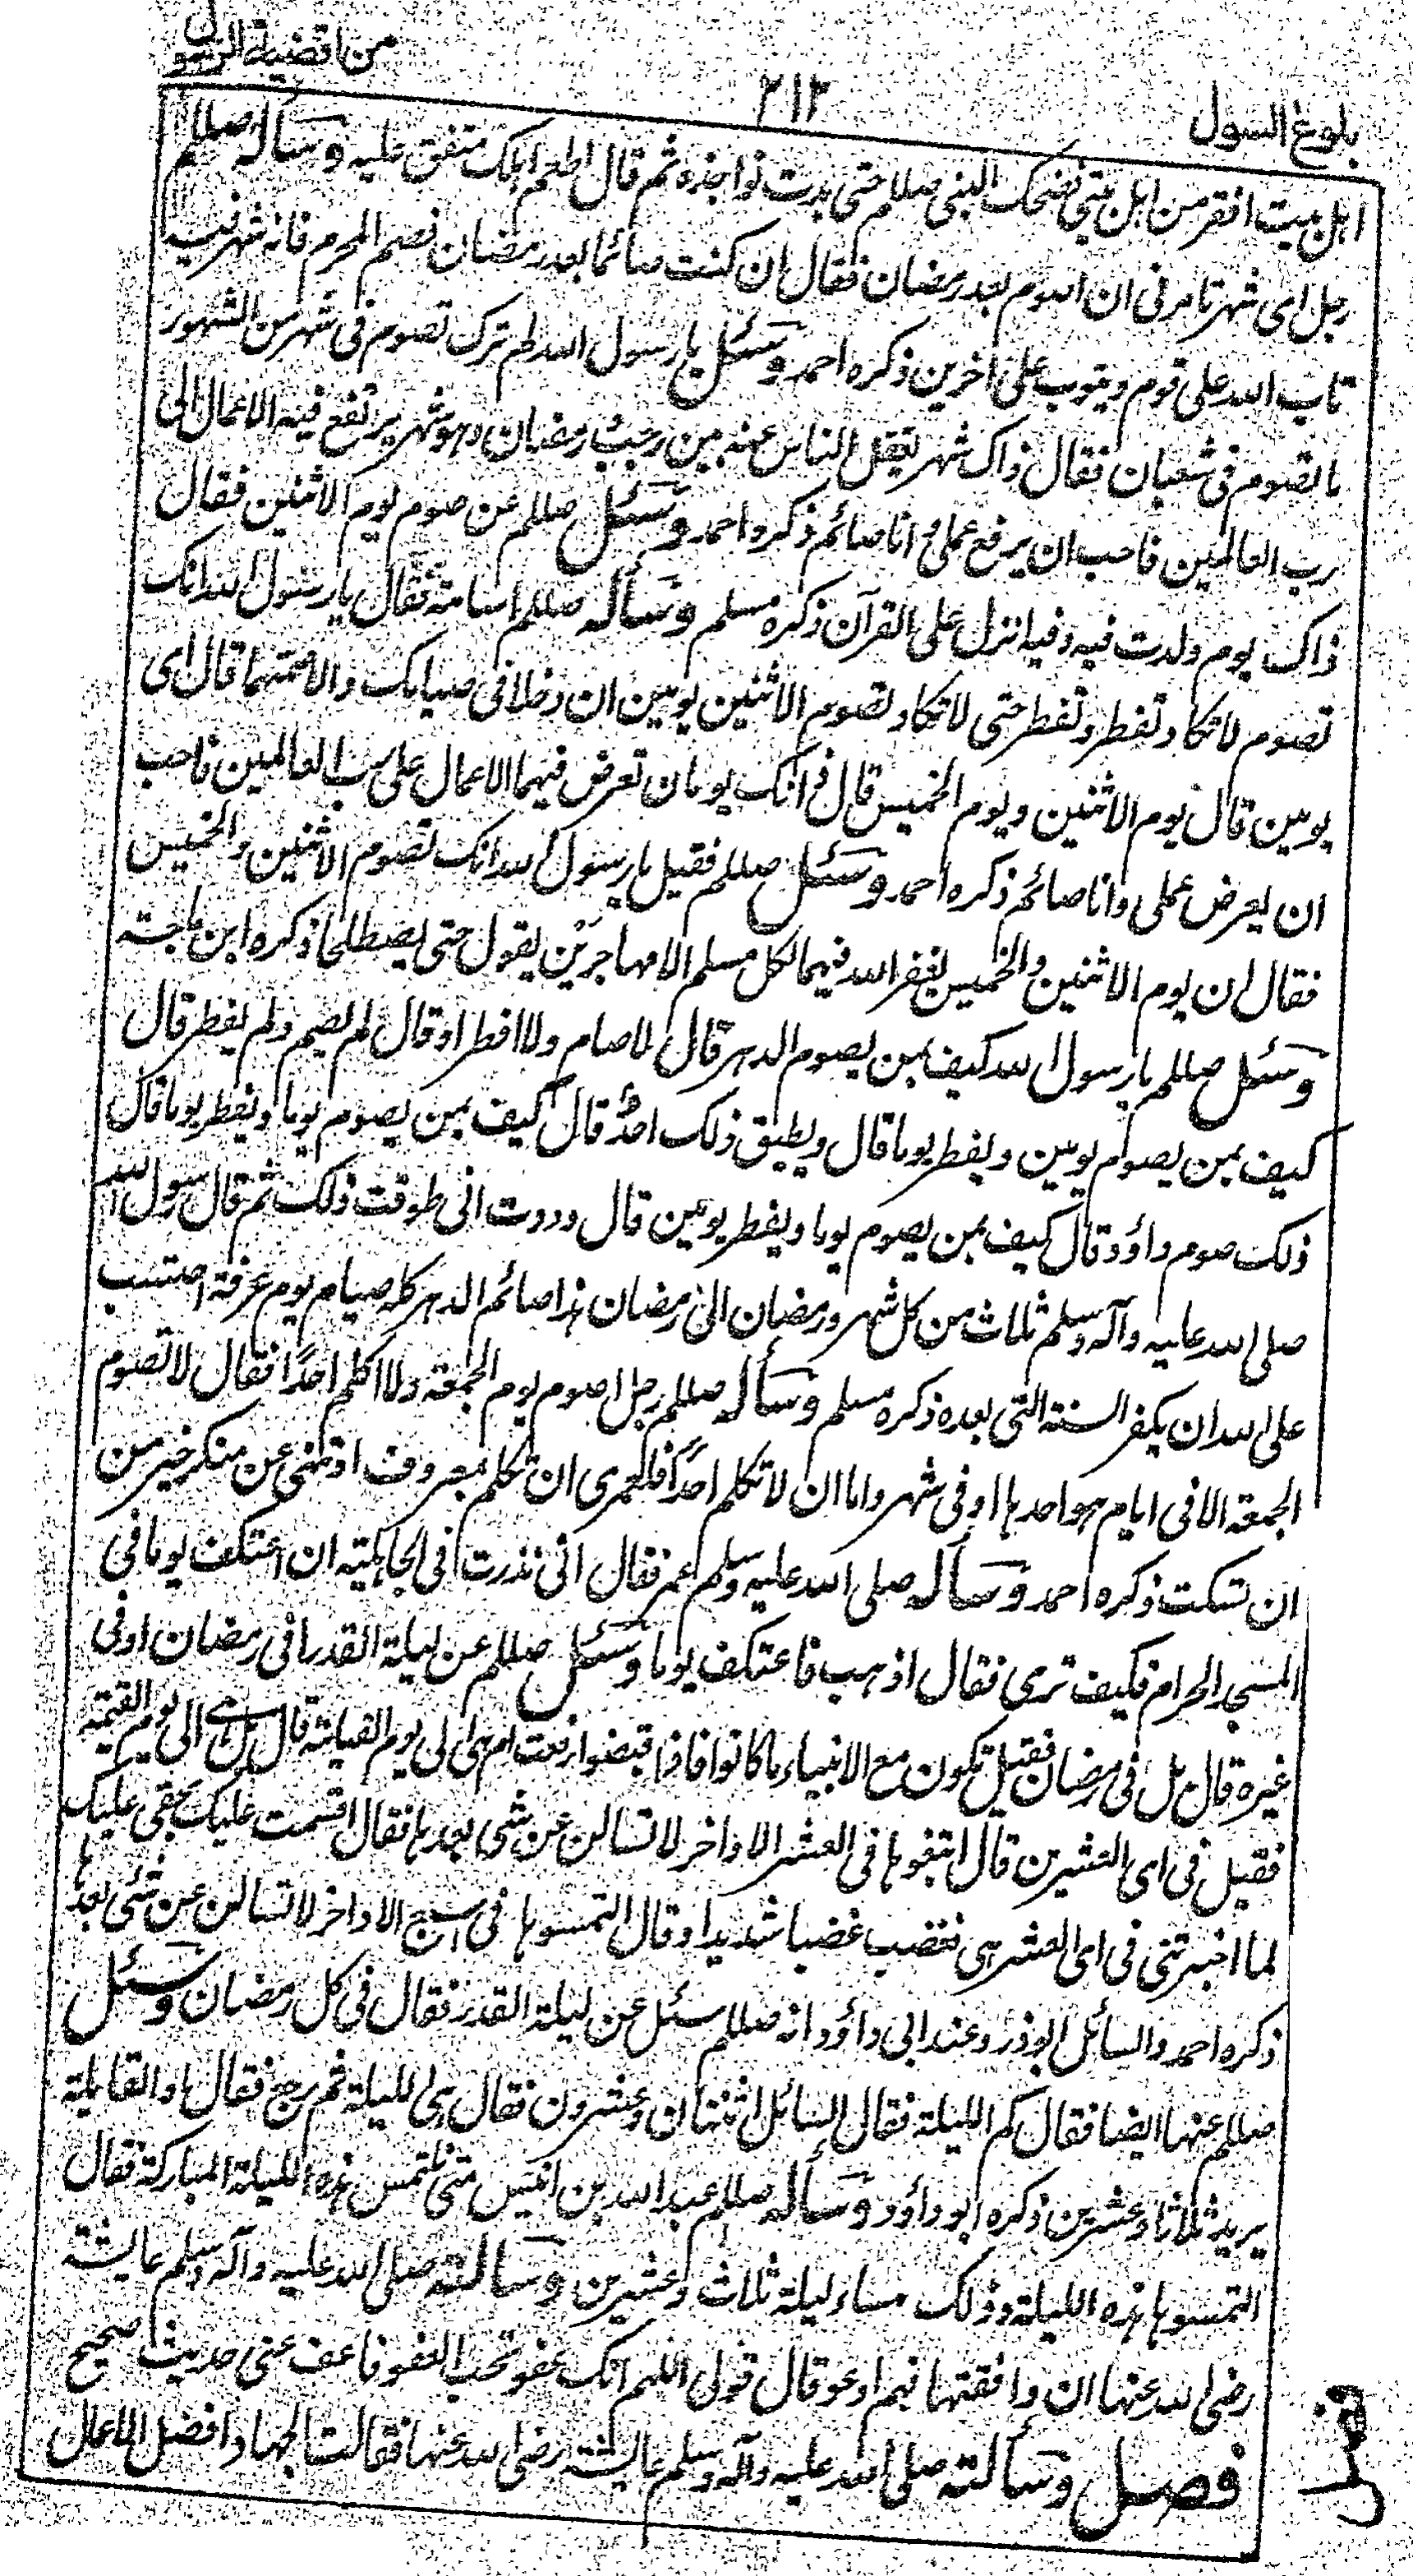 بلوغ السول ٢١٢ من اقضية الرسول
اہل بيت افقر من اہل بيتی فضحک النبی صللم حتی بدت نواجذه ثم قال اطعم اہلک متفق عليه وسأله صللم
رجل ای شهر تامرنی ان اصوم بعد رمضان فقال ان کنت صائما بعد رمضان فصم المحرم فانه شهر فيه
تاب الله علی قوم ويتوب علی اخرين ذکره احمد وسئل يا رسول الله لم نرک تصوم فی شهر من الشهور
ما تصوم فی شعبان فقال ذاک شهر يغفل الناس عنه بين رجب ورمضان وہو شهر يرتفع فيه الاعمال الی
رب العالمين فاحب ان يرفع عملی وانا صائم ذکره احمد وسئل صللم عن صوم يوم الاثنين فقال
ذاک يوم ولدت فيه وفيه انزل علی القرآن ذکره مسلم وسأله صللم اسامة فقال يا رسول الله انک
تصوم لا تکاد تفطر وتفطر حتی لا تکاد تصوم الا اثنين يومين ان دخلا فی صيامک والا صمتهما قال ای
يومين قال يوم الاثنين ويوم الخميس قال ذانک يومان تعرض فيهما الاعمال علی رب العالمين فاحب
ان يعرض عملی وانا صائم ذکره احمد وسئل صللم فقيل يا رسول الله انک تصوم الاثنين والخميس
فقال ان يوم الاثنين والخميس يغفر الله فيهما لکل مسلم الا مهاجرين يقول حتی يصطلحا ذکره ابن ماجة
وسئل صللم يا رسول الله کيف بمن يصوم الدہر قال لا صام ولا افطر او قال لم يصم ولم يفطر قال
کيف بمن يصوم يومين ويفطر يوما قال ويطيق ذلک احد قال کيف بمن يصوم يوما ويفطر يوما قال
ذلک صوم داؤد قال کيف بمن يصوم يوما ويفطر يومين قال وددت انی طوقت ذلک ثم قال رسول الله
صلی الله عليه وآله وسلم ثلاث من کل شهر ورمضان الی رمضان ہذا صائم الدہر کله صيام يوم عرفة احتسب
علی الله ان يکفر السنة التی بعده ذکره مسلم وسأله صللم رجل اصوم يوم الجمعة ولا اکلم احدًا فقال لا تصوم
الجمعة الا فی ايام ہو احدہا او فی شهر واما ان لا تکلم احدًا فلعمری ان تکلم بمعروف او تنهی عن منکر خير من
ان تسکت ذکره احمد وسأله صلی الله عليه وسلم عمر فقال انی نذرت فی الجاہلية ان اعتکف يوما فی
المسجد الحرام فکيف تری فقال اذہب فاعتکف يوما وسئل صللم عن ليلة القدر افی رمضان او فی
غيره قال بل فی رمضان فقيل تکون مع الانبياء ما کانوا فاذا قبضوا رفعت ام ہی الی يوم القيامة قال بل ہی الی يوم القيمة
فقيل فی ای العشرين قال ابتغوہا فی العشر الاواخر لا تسالن عن شی بعدہا فقال اقسمت عليک بحقی عليک
لما اخبرتنی فی ای العشر ہی فغضب غضبا شديدا وقال التمسوہا فی السبع الاواخر لا تسالن عن شئی بعدہا
ذکره احمد والسائل ابوذر وعند ابی داؤد انه صللم سئل عن ليلة القدر فقال فی کل رمضان وسئل
صللم عنها ايضا فقال کم الليلة فقال السائل اثنتان وعشرون فقال ہی الليلة ثم رجع فقال او القابلة
يريد ثلاثا وعشرين ذکره ابو داؤد وسأله صللم عبد الله بن انيس متی نلتمس ہذه الليلة المبارکة فقال
التمسوہا ہذه الليلة وذلک مساء ليلة ثلاث وعشرين وسألته صلی الله عليه وآله وسلم عائشة
رضی الله عنها ان وافقتها فبم ادعو قال قولی اللهم انک عفو تحب العفو فاعف عنی حديث صحيح
فصل وسألته صلی الله عليه وآله وسلم عائشة رضی الله عنها فقالت الجهاد افضل الاعمال